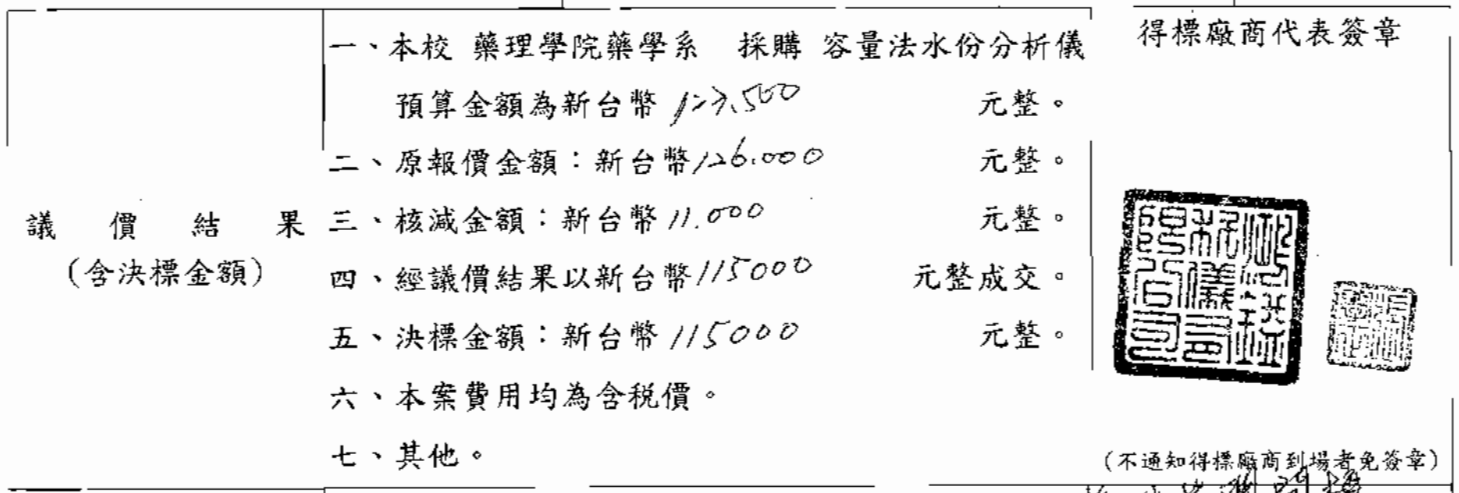 一、本校 藥理學院藥學系 採購 容量法水份分析儀
預算金額為新台幣 127,500 元整。
二、原報價金額：新台幣126.000 元整。
議價結果 三、核減金額：新台幣 11.000 元整。
(含決標金額) 四、經議價結果以新台幣115000 元整成交。
五、決標金額：新台幣 115000 元整。
六、本案費用均為含稅價。
七、其他。
得標廠商代表簽章
(不通知得標廠商到場者免簽章)